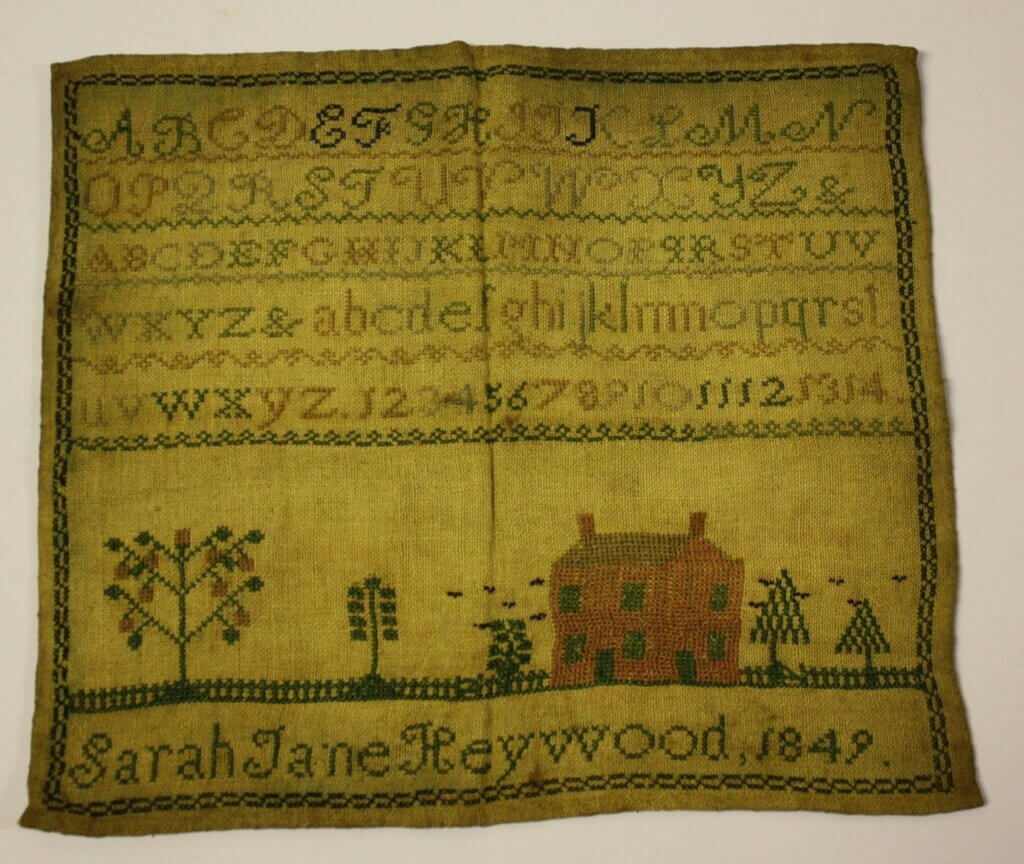 A B C D E F G H I J K L M N
O P Q R S T U V W X Y Z &
A B C D E F G H I J K L M N O P Q R S T U V
W X Y Z & a b c d e f g h i j k l m n o p q r s t
u v w x y z. 1 2 3 4 5 6 7 8 9 10 11 12 13 14.
Sarah Jane Heywood, 1849.